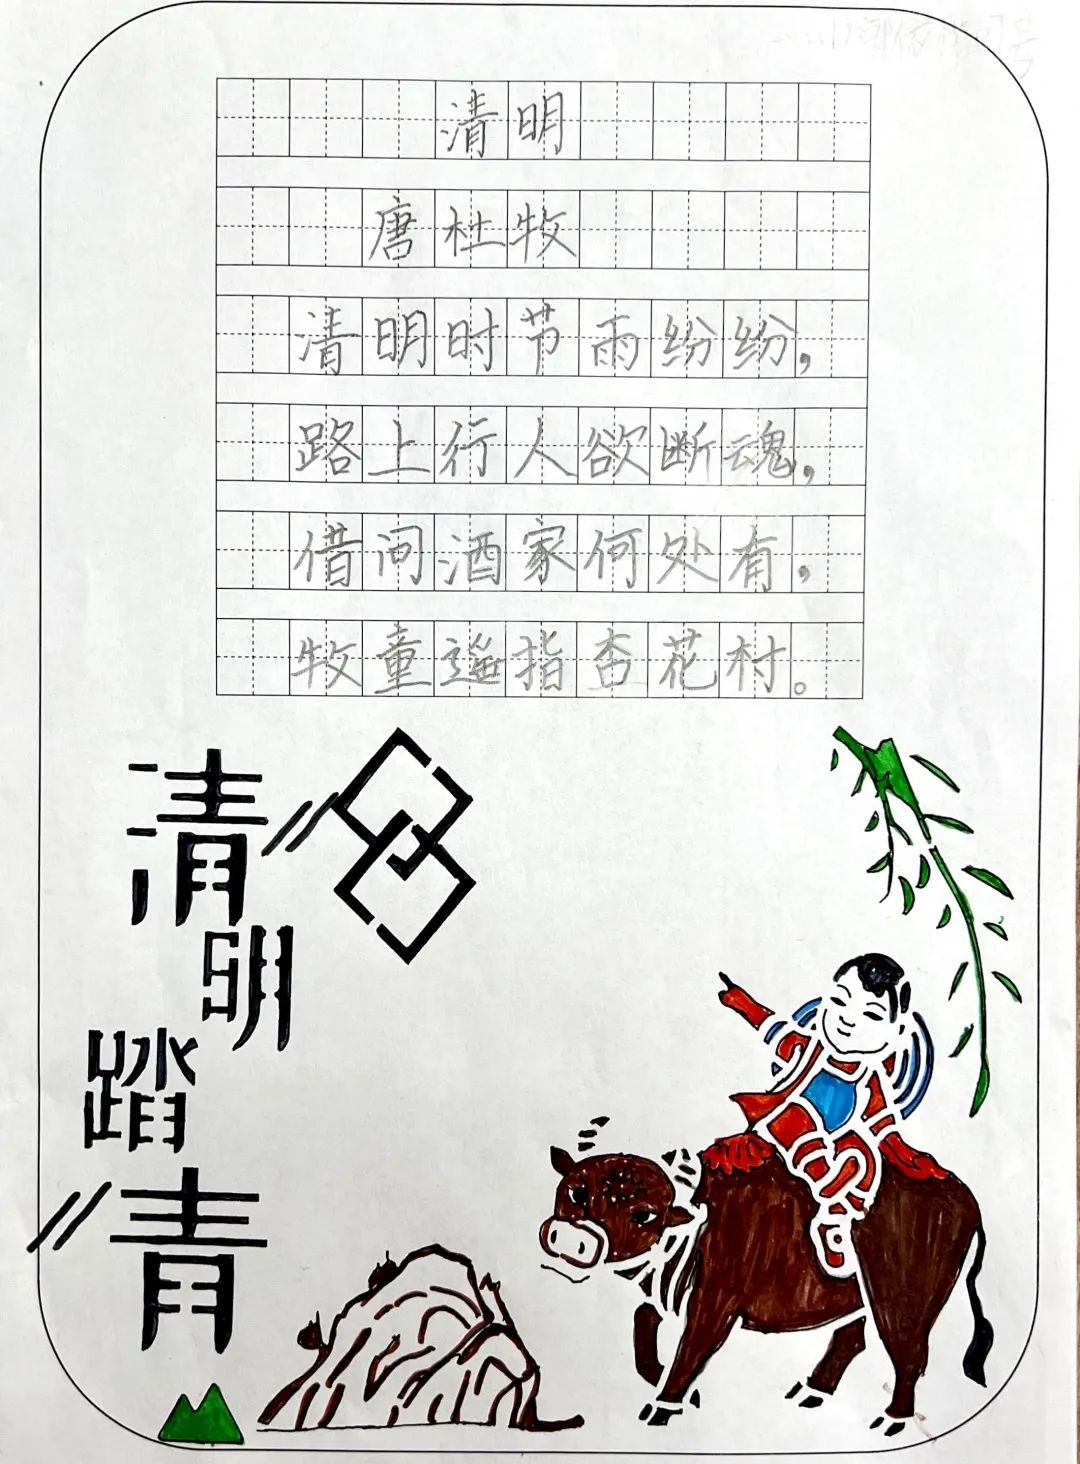 清明
唐杜牧
清明时节雨纷纷，
路上行人欲断魂，
借问酒家何处有，
牧童遥指杏花村。
清
明
踏
青